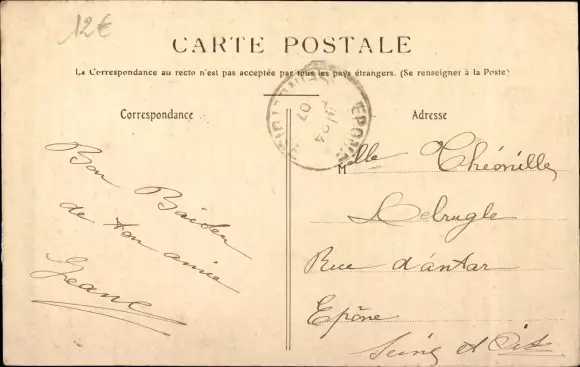 12€
CARTE POSTALE
La Correspondance au recto n'est pas acceptée par tous les pays étrangers. (Se renseigner à la Poste)
Correspondance
Bon Baiser
de ton amie
Jeane
Adresse
Mlle Théonille
Lebrugle
Rue d'antar
Epône
Seine et Oise
EPONE
24
07